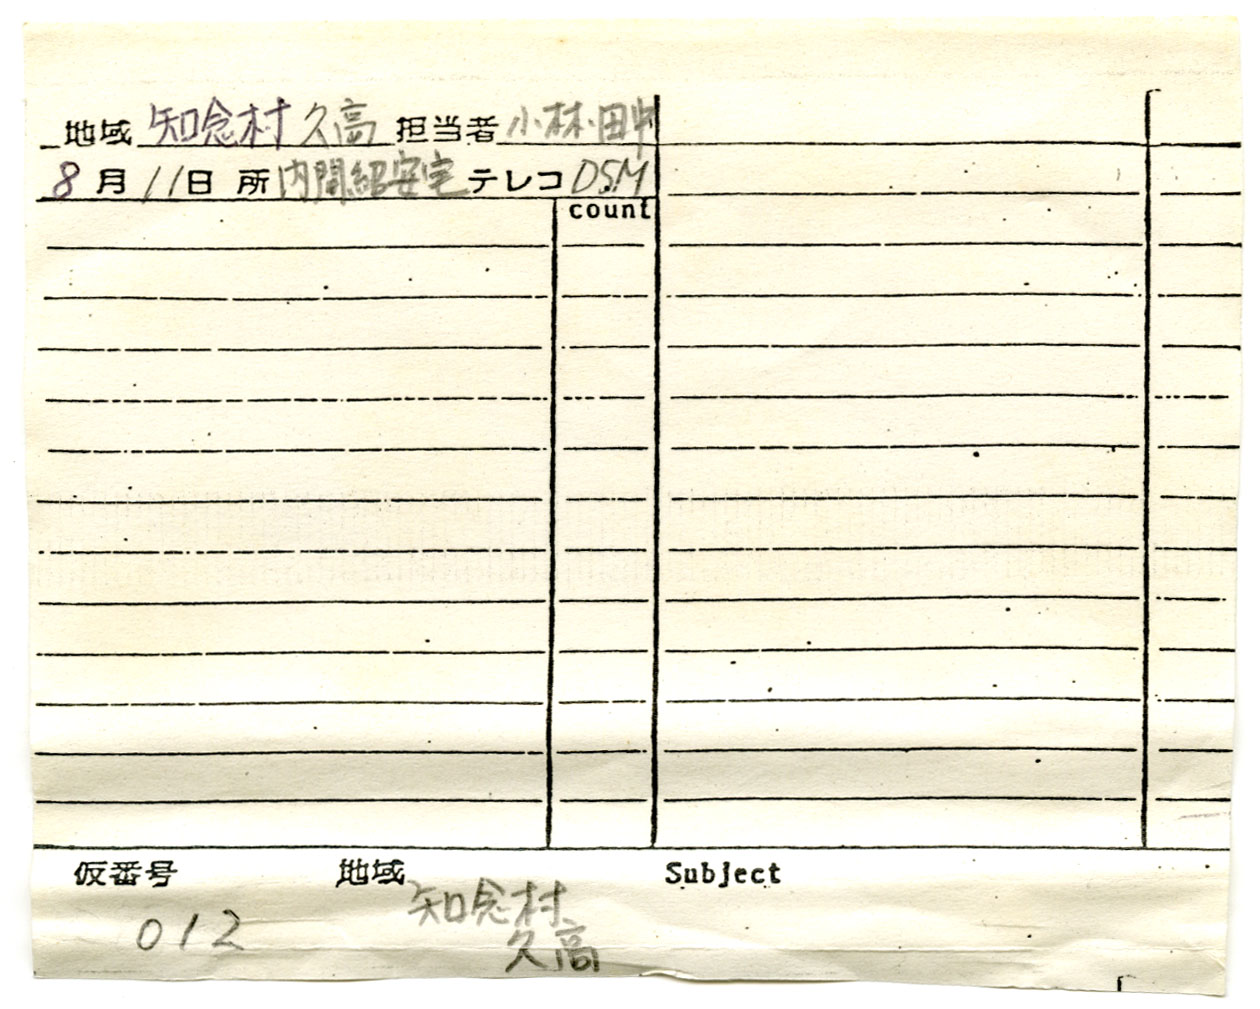 地域 知念村 久高 担当者 小林・田中
8月11日 所 内間紹安宅 テレコ DSM
count
仮番号 地域 Subject
012 知念村
久高